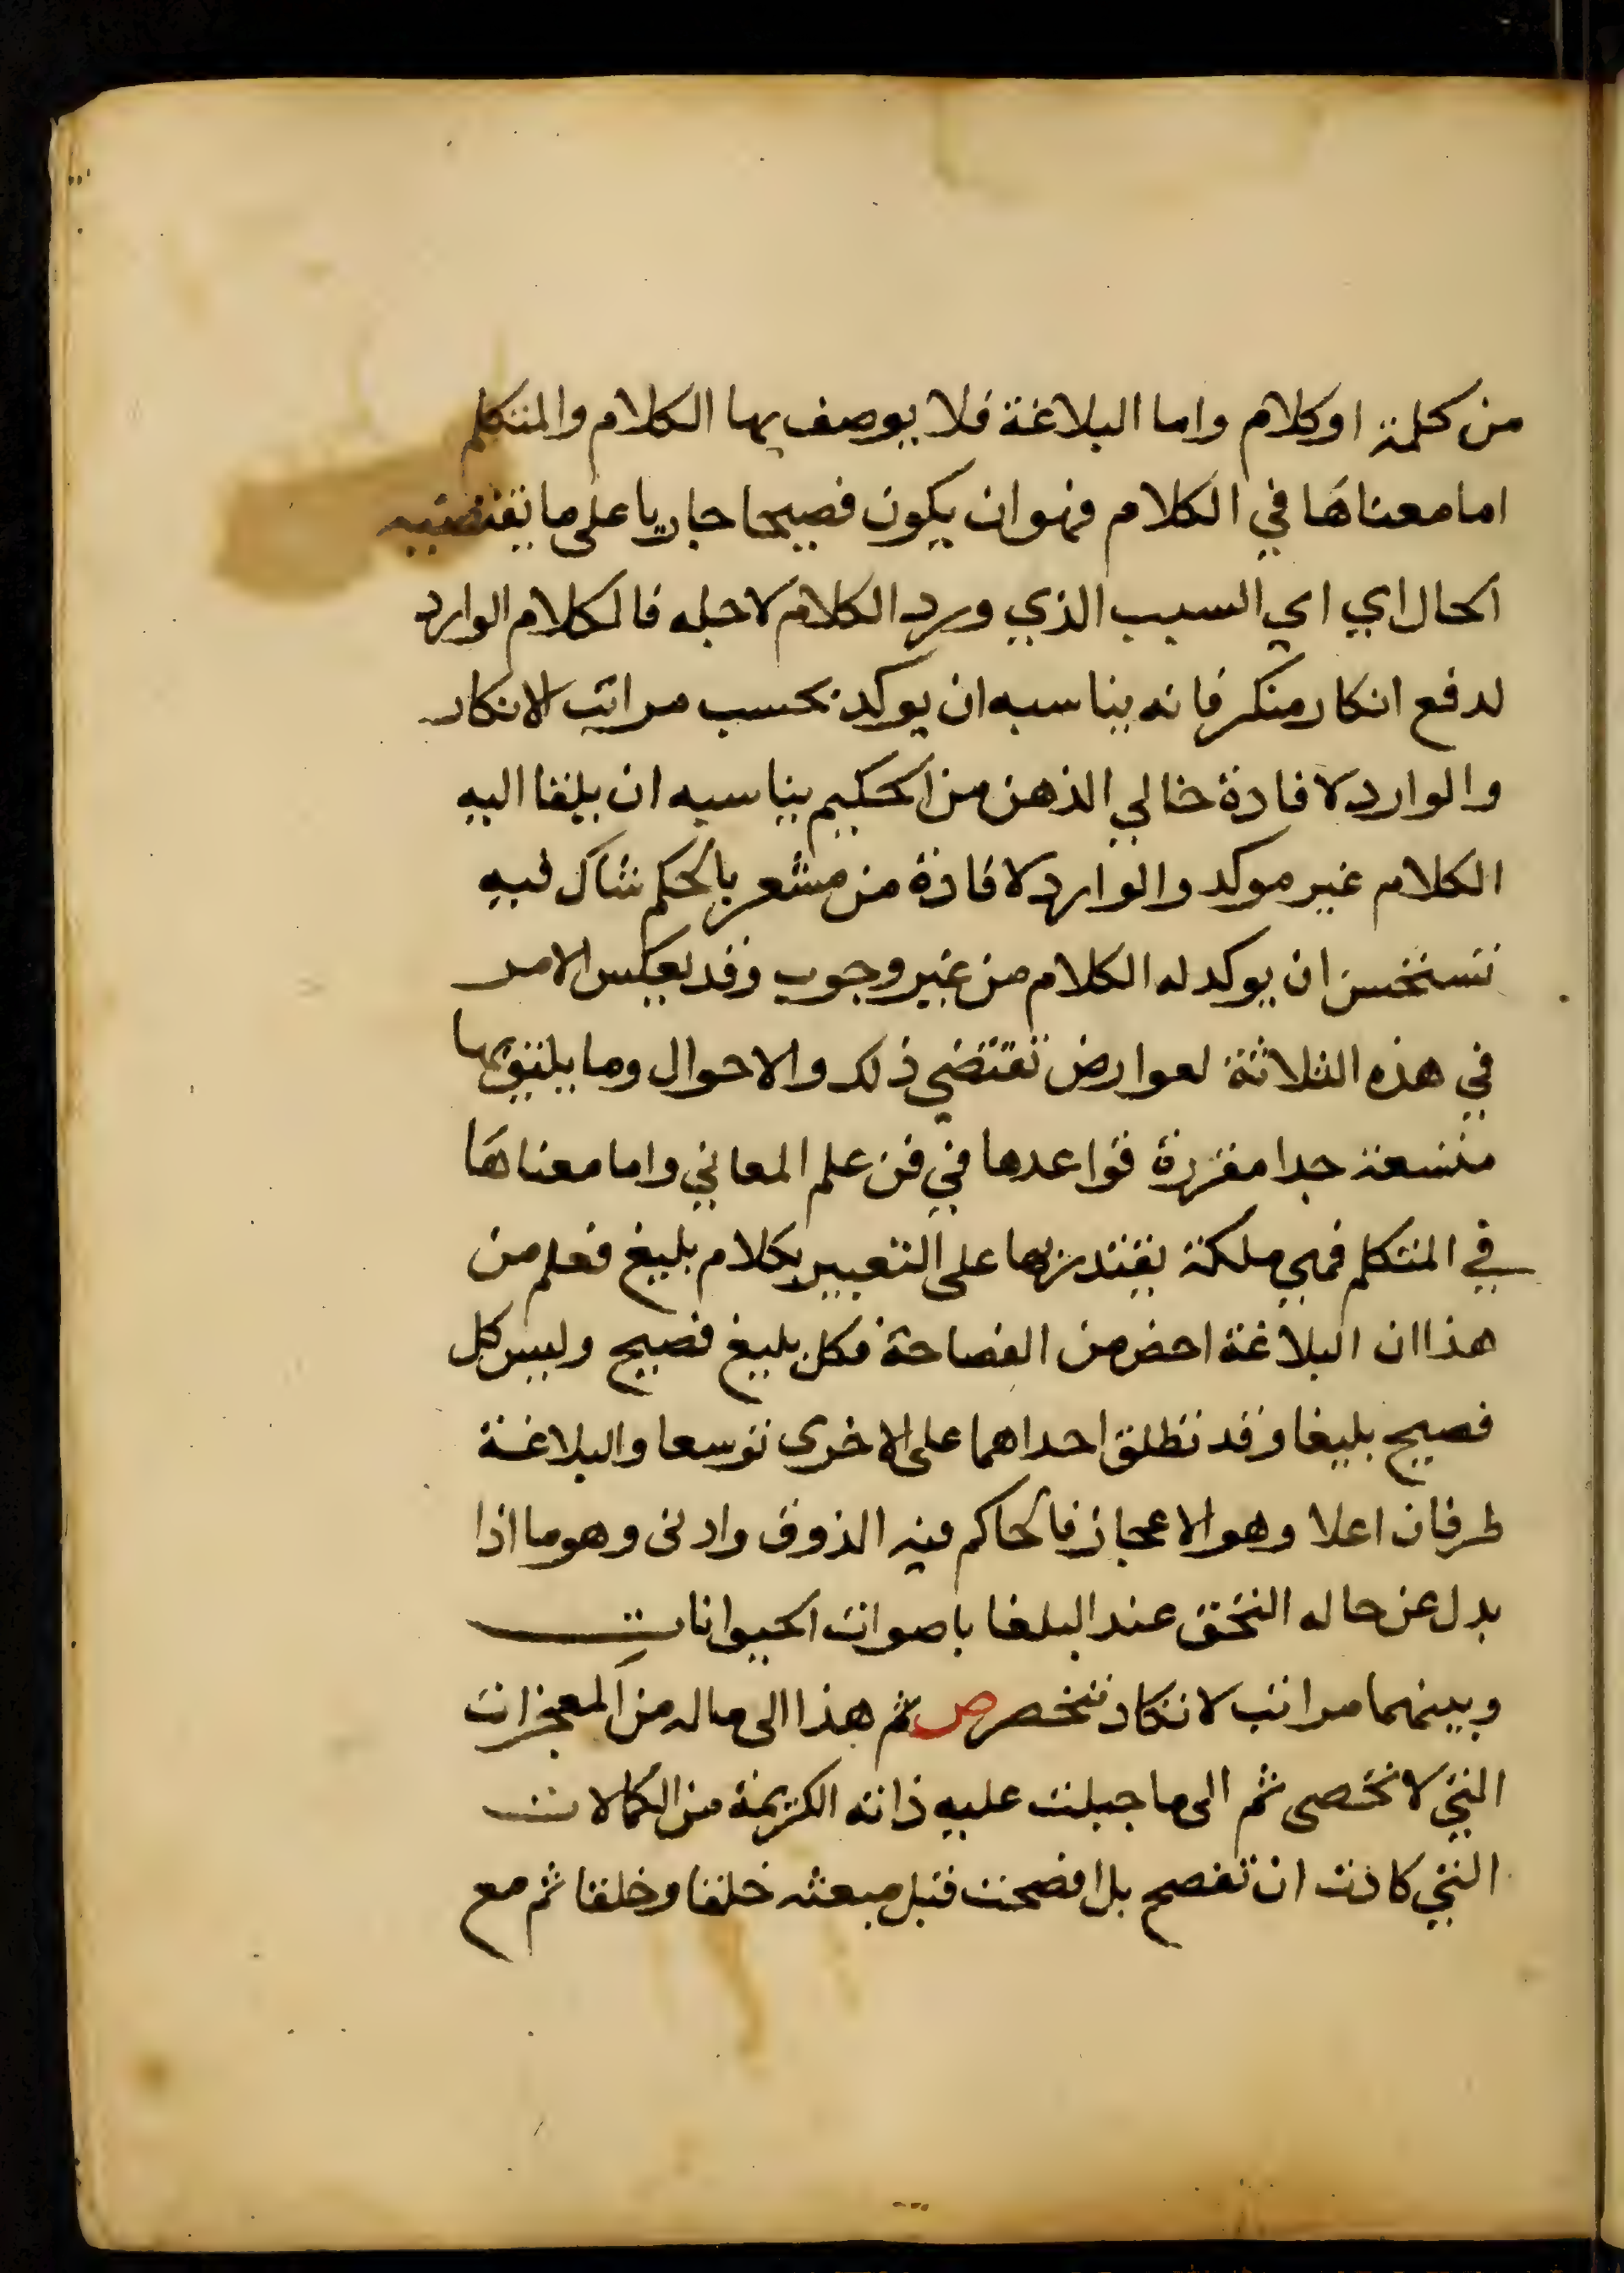 من كلمة اوكلام واما البلاغة فلا يوصف بها الكلام والمتكلم
امامعناها في الكلام فهو ان يكون فصيحا جاريا على ما تقتضيه
الحال اي اي السبب الذي ورد الكلام لاجله فالكلام الوارد
لدفع انكار منكر فانه يناسبه ان يوكد بحسب مراتب الانكار
والوارد لافادة خالي الذهن من الحكيم يناسبه ان يلقا اليه
الكلام غير موكد والوارد لافادة من مشعر بالحكم شاك فيه
تستحسن ان يوكد له الكلام من غير وجوب وقد يعكس الامر
في هذه الثلاثة لعوارض تقتضي ذلك والاحوال وما يليق بها
متسعة جدا مقررة قواعدها في فن علم المعاني واما معناها
في المتكلم فهي ملكة يقتدر بها على التعبير بكلام بليغ فعلم من
هذا ان البلاغة اخص من الفصاحة فكل بليغ فصيح وليس كل
فصيح بليغا وقد تطلق احداهما على الاخرى توسعا والبلاغة
طرفان اعلا وهو الاعجاز فالحاكم فيه الذوق وادنى وهو ما اذا
بدل عن حاله التحق عند البلغا باصوات الحيوانات
وبينهما مراتب لا تكاد تنحصر ص ثم هذا الى ماله من المعجزات
التي لا تحصى ثم الى ما جبلت عليه ذاته الكريمة من الكمالات
التي كادت ان تفصح بل افصحت قبل مبعثه خلقا وخلقا ثم مع